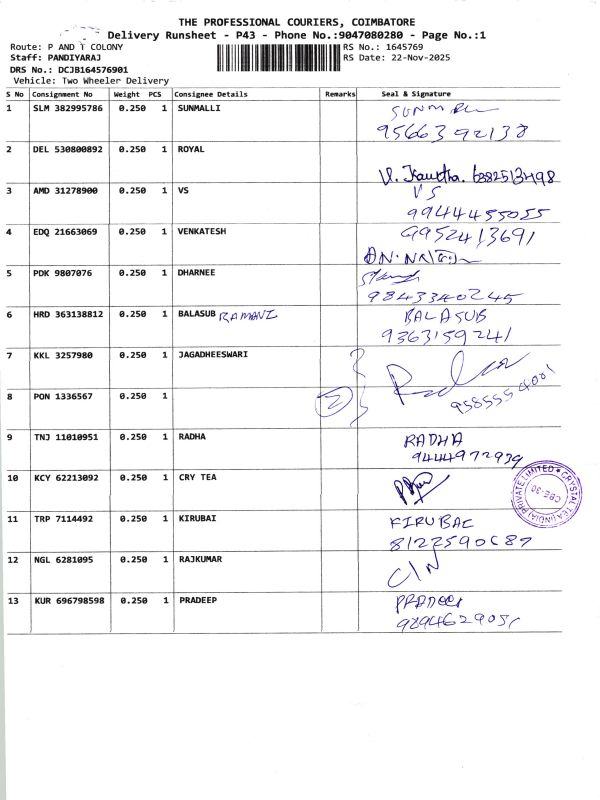 THE PROFESSIONAL COURIERS, COIMBATORE
Delivery Runsheet - P43 - Phone No.:9047080280 - Page No.:1
Route: P AND T COLONY RS No.: 1645769
Staff: PANDIYARAJ RS Date: 22-Nov-2025
DRS No.: DCJB164576901
Vehicle: Two Wheeler Delivery
S No Consignment No Weight PCS Consignee Details Remarks Seal & Signature
1 SLM 382995786 0.250 1 SUNMALLI
9566392138
2 DEL 530800892 0.250 1 ROYAL
V. Kavitha. 6382513498
3 AMD 31278900 0.250 1 VS VS
9944455055
4 EDQ 21663069 0.250 1 VENKATESH 9952413691
5 PDK 9807076 0.250 1 DHARNEE
9843340245
6 HRD 363138812 0.250 1 BALASUB RAMANI BALASUB
9363159241
7 KKL 3257980 0.250 1 JAGADHEESWARI
9585554001
8 PON 1336567 0.250 1 2
9 TNJ 11010951 0.250 1 RADHA RADHA
9444972939
10 KCY 62213092 0.250 1 CRY TEA
CRYSTAL TEA (INDIA) PRIVATE LIMITED
CBE-30
11 TRP 7114492 0.250 1 KIRUBAI KIRUBAI
8122590687
12 NGL 6281095 0.250 1 RAJKUMAR C/N
13 KUR 696798598 0.250 1 PRADEEP PRADEEP